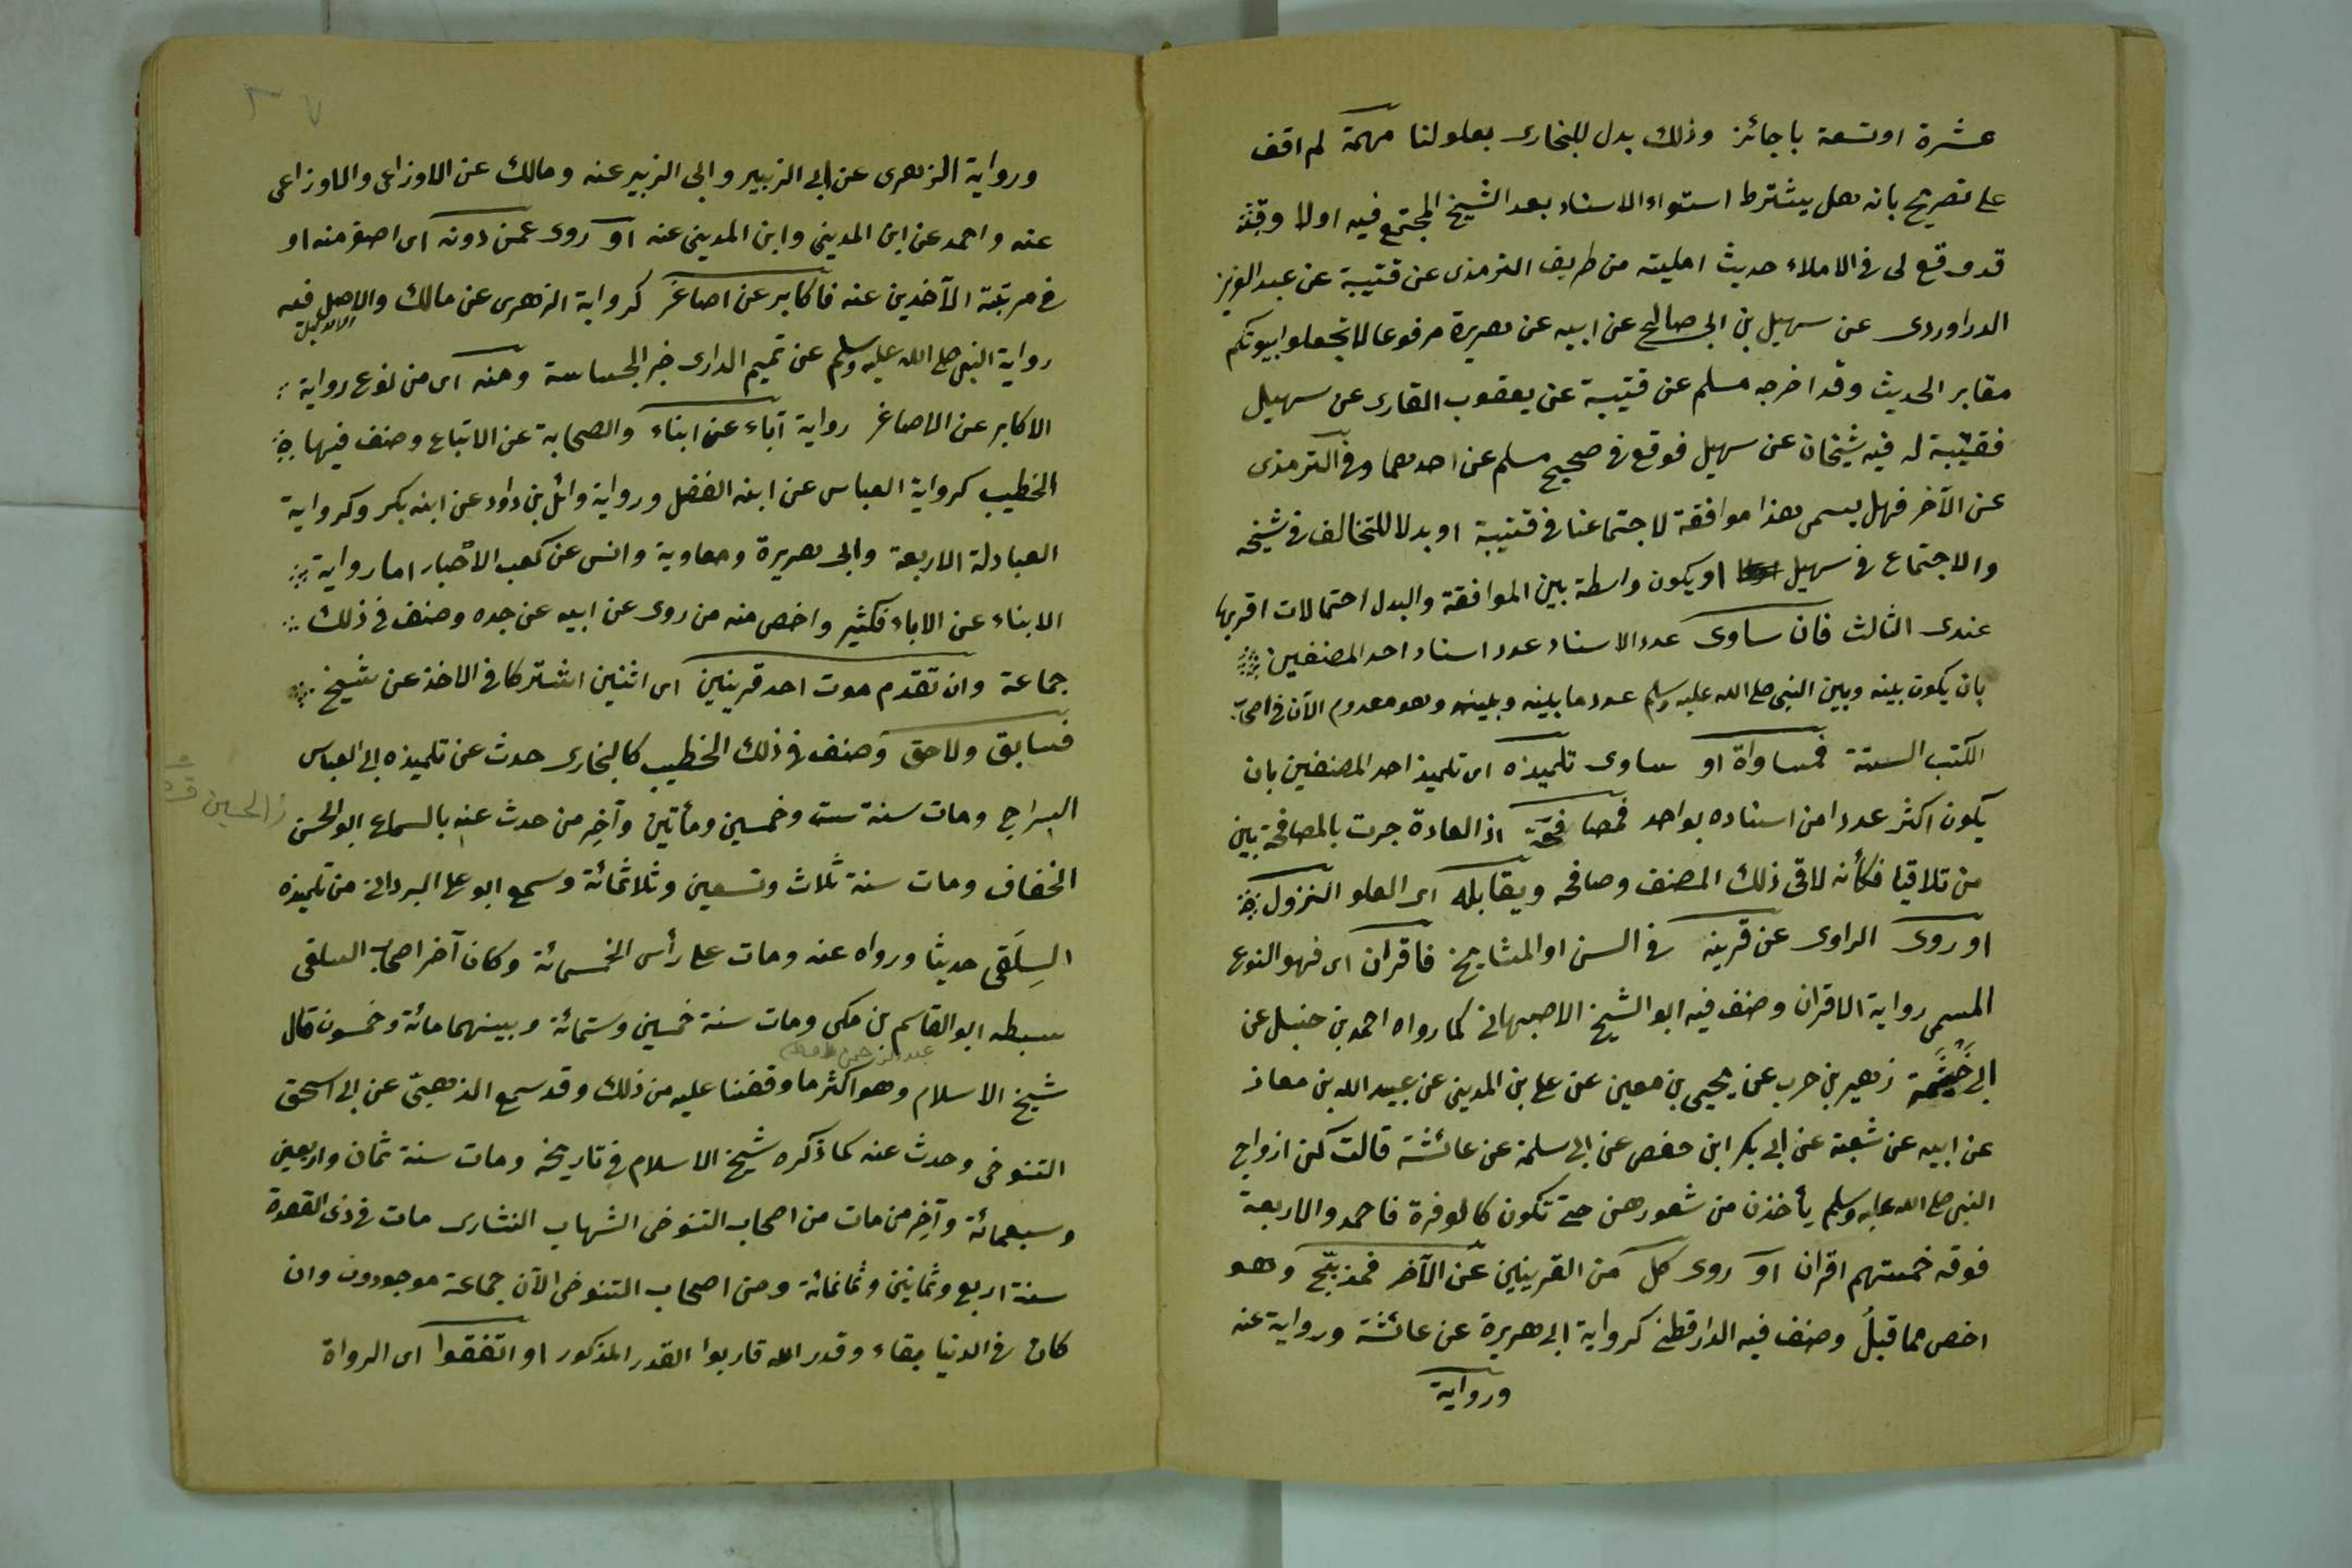 عشرة او تسعة باجائز وذلك بدل للبخارى بعلو لنا مهمة لم اقف
على تصريح بانه هل يشترط استواء الاسناد بعد الشيخ المجتمع فيه اولا وقد
قد وقع لى فى الاملاء حديث امليته من طريق الترمذى عن قتيبة عن عبد العزيز
الدراوردى عن سهيل بن ابى صالح عن ابيه عن هريرة مرفوعا لا تجعلوا بيوتكم
مقابر الحديث وقد اخرجه مسلم عن قتيبة عن يعقوب القارى عن سهيل
فقتيبة له فيه شيخان عن سهيل فوقع فى صحيح مسلم عن احدهما وفى الترمذى
عن الآخر فهل يسمى هذا موافقة لاجتماعنا فى قتيبة او بدلا للتخالف فى شيخه
والاجتماع فى سهيل او يكون واسطة بين الموافقة والبدل احتمالات اقربها
عندى الثالث فان ساوى عدد الاسناد عدد اسناد احد المصنفين
بان يكون بينه وبين النبى صلى الله عليه وسلم عدد ما بينه وبينه وهو معدوم الآن فى اصحاب
الكتب الستة فمساواة او ساوى تلميذه اى تلميذ احد المصنفين بان
يكون اكثر عددا من اسناده بواحد فمصافحة اذ العادة جرت بالمصافحة بين
من تلاقيا فكأنه لاقى ذلك المصنف وصافحه ويقابله اى العلو النزول
او روى الراوى عن قرينه فى السن او المشايخ فاقران اى فهو النوع
المسمى رواية الاقران وصنف فيه ابو الشيخ الاصبهانى كما رواه احمد بن حنبل عن
ابى خَيْثَمة زهير بن حرب عن يحيى بن معين عن على بن المدينى عن عبيد الله بن معاذ
عن ابيه عن شعبة عن ابى بكر ابن حفص عن ابى سلمة عن عائشة قالت كن ازواج
النبى صلى الله عليه وسلم يأخذن من شعورهن حتى تكون كالوفرة فاحمد والاربعة
فوقه خمستهم اقران او روى كل من القرينين عن الآخر فمدبّج وهو
اخص مما قبلُ وصنف فيه الدارقطنى كرواية ابى هريرة عن عائشة ورواية عنه
ورواية
ورواية الزهرى عن ابى الزبير وابى الزبير عنه ومالك عن الاوزاعى والاوزاعى
عنه واحمد عن ابن المدينى وابن المدينى عنه او روى عمن دونه اى اصغر منه او
فى مرتبة الآخذين عنه فاكابر عن اصاغر كرواية الزهرى عن مالك والاصل فيه
رواية النبى صلى الله عليه وسلم عن تميم الدارى خبر الجساسة ومنه اى من نوع رواية
الاكابر عن الاصاغر رواية آباء عن ابناء والصحابة عن الاتباع وصنف فيها
الخطيب كرواية العباس عن ابنه الفضل ورواية وائل بن داود عن ابنه بكر وكرواية
العبادلة الاربعة وابى هريرة ومعاوية وانس عن كعب الاحبار اما رواية
الابناء عن الاباء فكثير واخص منه من روى عن ابيه عن جده وصنف فى ذلك
جماعة وان تقدم موت احد قرينين اى اثنين اشتركا فى الاخذ عن شيخ
فسابق ولاحق وصنف فى ذلك الخطيب كالبخارى حدث عن تلميذه ابى العباس
السراج ومات سنة ست وخمسين ومأتين وآخِر من حدث عنه بالسماع ابو الحسن
الحسين
الخفاف ومات سنة ثلاث وتسعين وثلاثمائة وسمع ابو على البردانى من تلميذه
السِلَفى حديثا ورواه عنه ومات على رأس الخمسمائة وكان آخر اصحاب السلفى
سبطه ابو القاسم بن مكى ومات سنة خمسين وستمائة وبينهما مائة وخمسون قال
عبد الرحمن
شيخ الاسلام وهو اكثر ما وقفنا عليه من ذلك وقد سمع الذهبىّ عن ابى اسحق
التنوخى وحدث عنه كما ذكره شيخ الاسلام فى تاريخه ومات سنة ثمان واربعين
وسبعمائة وآخِر من مات من اصحاب التنوخى الشهاب النشارى مات فى ذى القعدة
سنة اربع وثمانين وثمانمائة ومن اصحاب التنوخى الآن جماعة موجودون وان
كان فى الدنيا بقاء وقدر الله قاربوا القدر المذكور او اتفقوا اى الرواة